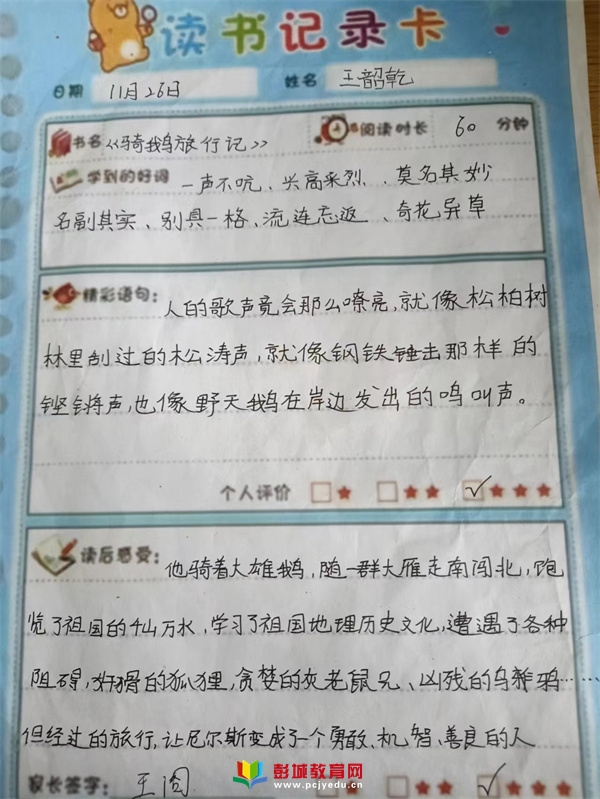 读书记录卡
日期 11月26日 姓名 王韶乾
书名 《骑鹅旅行记》 阅读时长 60 分钟
学到的好词 一声不吭、兴高采烈、莫名其妙
名副其实、别具一格、流连忘返、奇花异草
精彩语句: 人的歌声竟会那么嘹亮,就像松柏树
林里刮过的松涛声,就像钢铁锤击那样的
铿锵声,也像野天鹅在岸边发出的鸣叫声。
个人评价 □★ □★★ ☑★★★
读后感受: 他骑着大雄鹅,随一群大雁走南闯北,饱
览了祖国的千山万水,学习了祖国地理历史文化,遭遇了各种
阻碍,奸猾的狐狸,贪婪的灰老鼠兄、凶残的乌鸦……
但经过的旅行,让尼尔斯变成了一个勇敢、机智、善良的人
家长签字: 王阔 □★ □★★ ☑★★★
彭城教育网
www.pcjyedu.cn